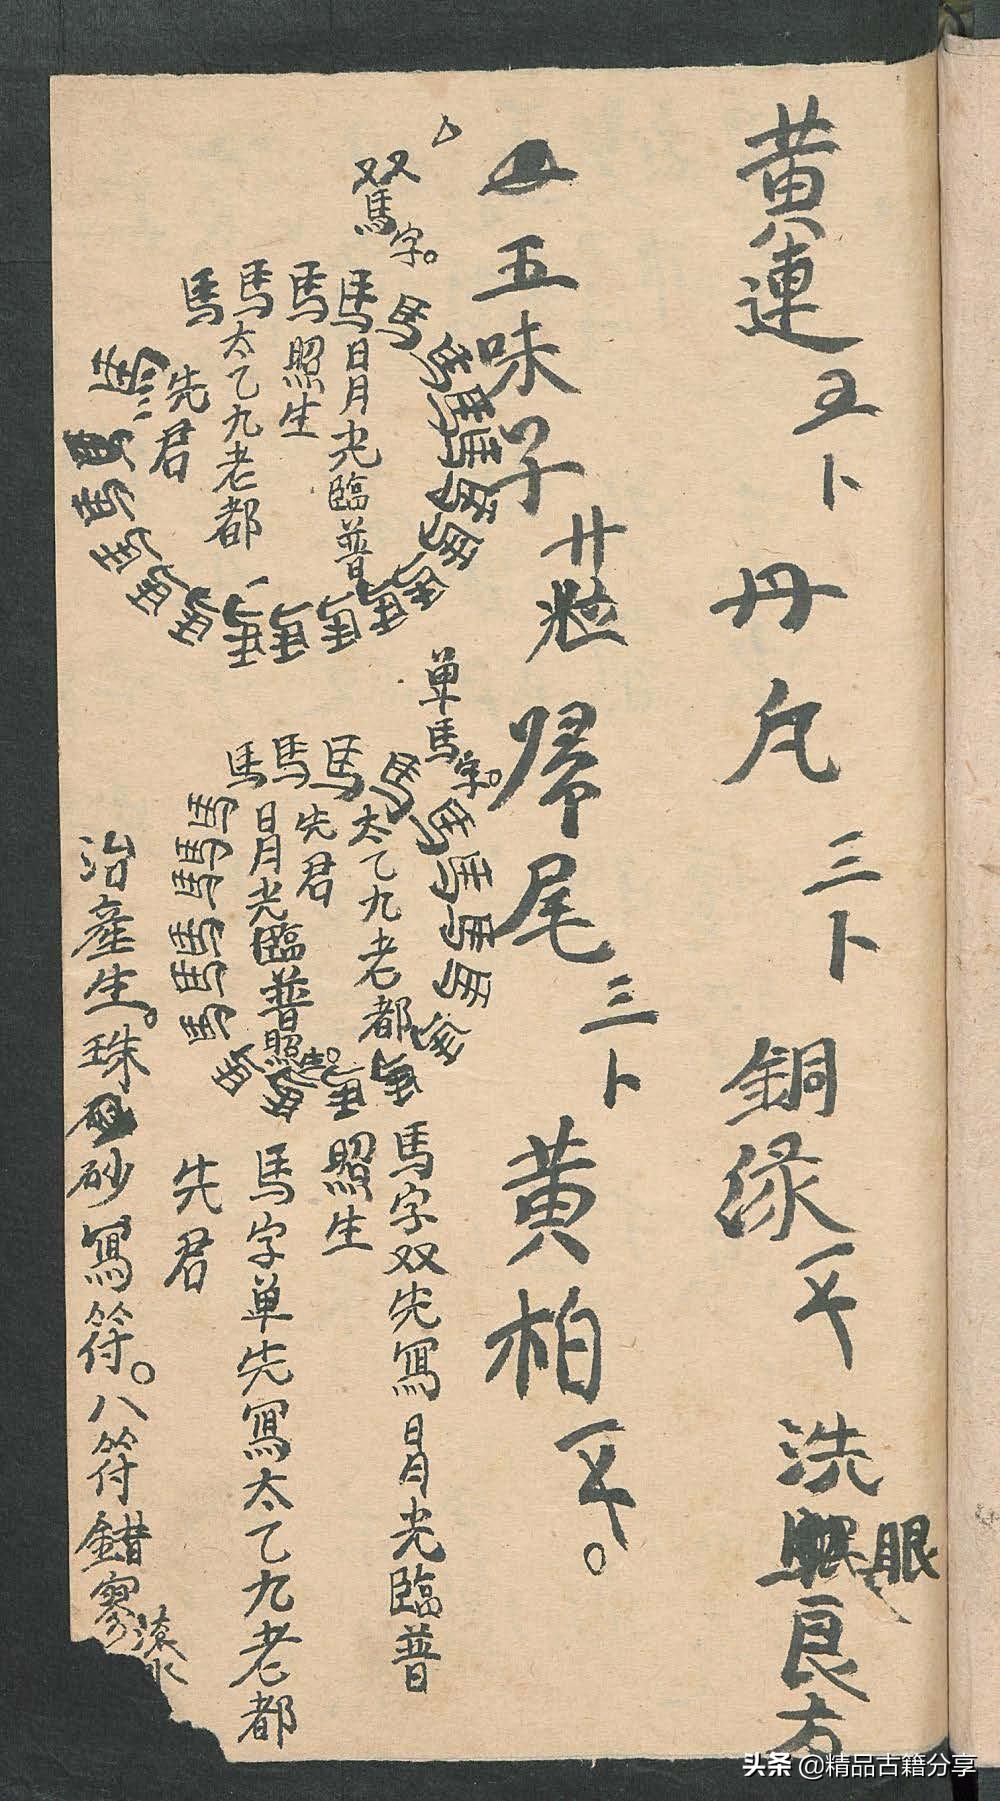 黄連五卜丹凡三卜銅绿一千洗眼良方
五味子廿粒归尾三卜黄柏一千。
双馬字。
馬馬馬馬馬馬馬馬馬馬馬馬馬馬馬馬馬馬馬馬馬
日月光臨普
照生
太乙九老都
先君
单馬字。
馬馬馬馬馬馬馬馬馬馬馬馬馬馬馬馬馬馬
太乙九老都
先君
日月光臨普照
馬字双先寫日月光臨普
照生
馬字单先寫太乙九老都
先君
治產生。珠砂寫符。八符錯寥滚水
头条 @精品古籍分享